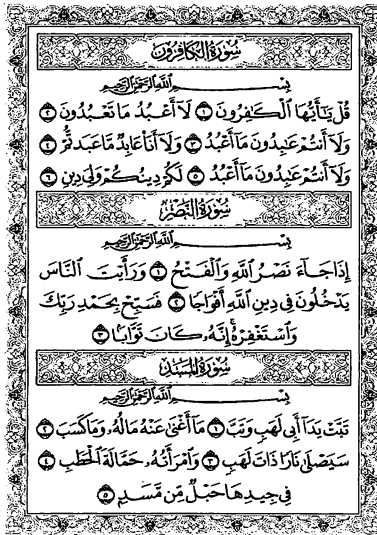 سُورَةُ الْكَافِرُونَ
بِسْمِ اللَّهِ الرَّحْمَٰنِ الرَّحِيمِ
قُلْ يَا أَيُّهَا الْكَافِرُونَ ١ لَا أَعْبُدُ مَا تَعْبُدُونَ ٢
وَلَا أَنتُمْ عَابِدُونَ مَا أَعْبُدُ ٣ وَلَا أَنَا عَابِدٌ مَّا عَبَدتُّمْ ٤
وَلَا أَنتُمْ عَابِدُونَ مَا أَعْبُدُ ٥ لَكُمْ دِينُكُمْ وَلِيَ دِينِ ٦
سُورَةُ النَّصْرِ
بِسْمِ اللَّهِ الرَّحْمَٰنِ الرَّحِيمِ
إِذَا جَاءَ نَصْرُ اللَّهِ وَالْفَتْحُ ١ وَرَأَيْتَ النَّاسَ
يَدْخُلُونَ فِي دِينِ اللَّهِ أَفْوَاجًا ٢ فَسَبِّحْ بِحَمْدِ رَبِّكَ
وَاسْتَغْفِرْهُ ۚ إِنَّهُ كَانَ تَوَّابًا ٣
سُورَةُ الْمَسَدِ
بِسْمِ اللَّهِ الرَّحْمَٰنِ الرَّحِيمِ
تَبَّتْ يَدَا أَبِي لَهَبٍ وَتَبَّ ١ مَا أَغْنَىٰ عَنْهُ مَالُهُ وَمَا كَسَبَ ٢
سَيَصْلَىٰ نَارًا ذَاتَ لَهَبٍ ٣ وَامْرَأَتُهُ حَمَّالَةَ الْحَطَبِ ٤
فِي جِيدِهَا حَبْلٌ مِّن مَّسَدٍ ٥